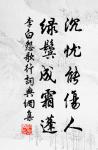 沉忧能伤人
绿鬓成霜蓬
李白怨歌行词典网集